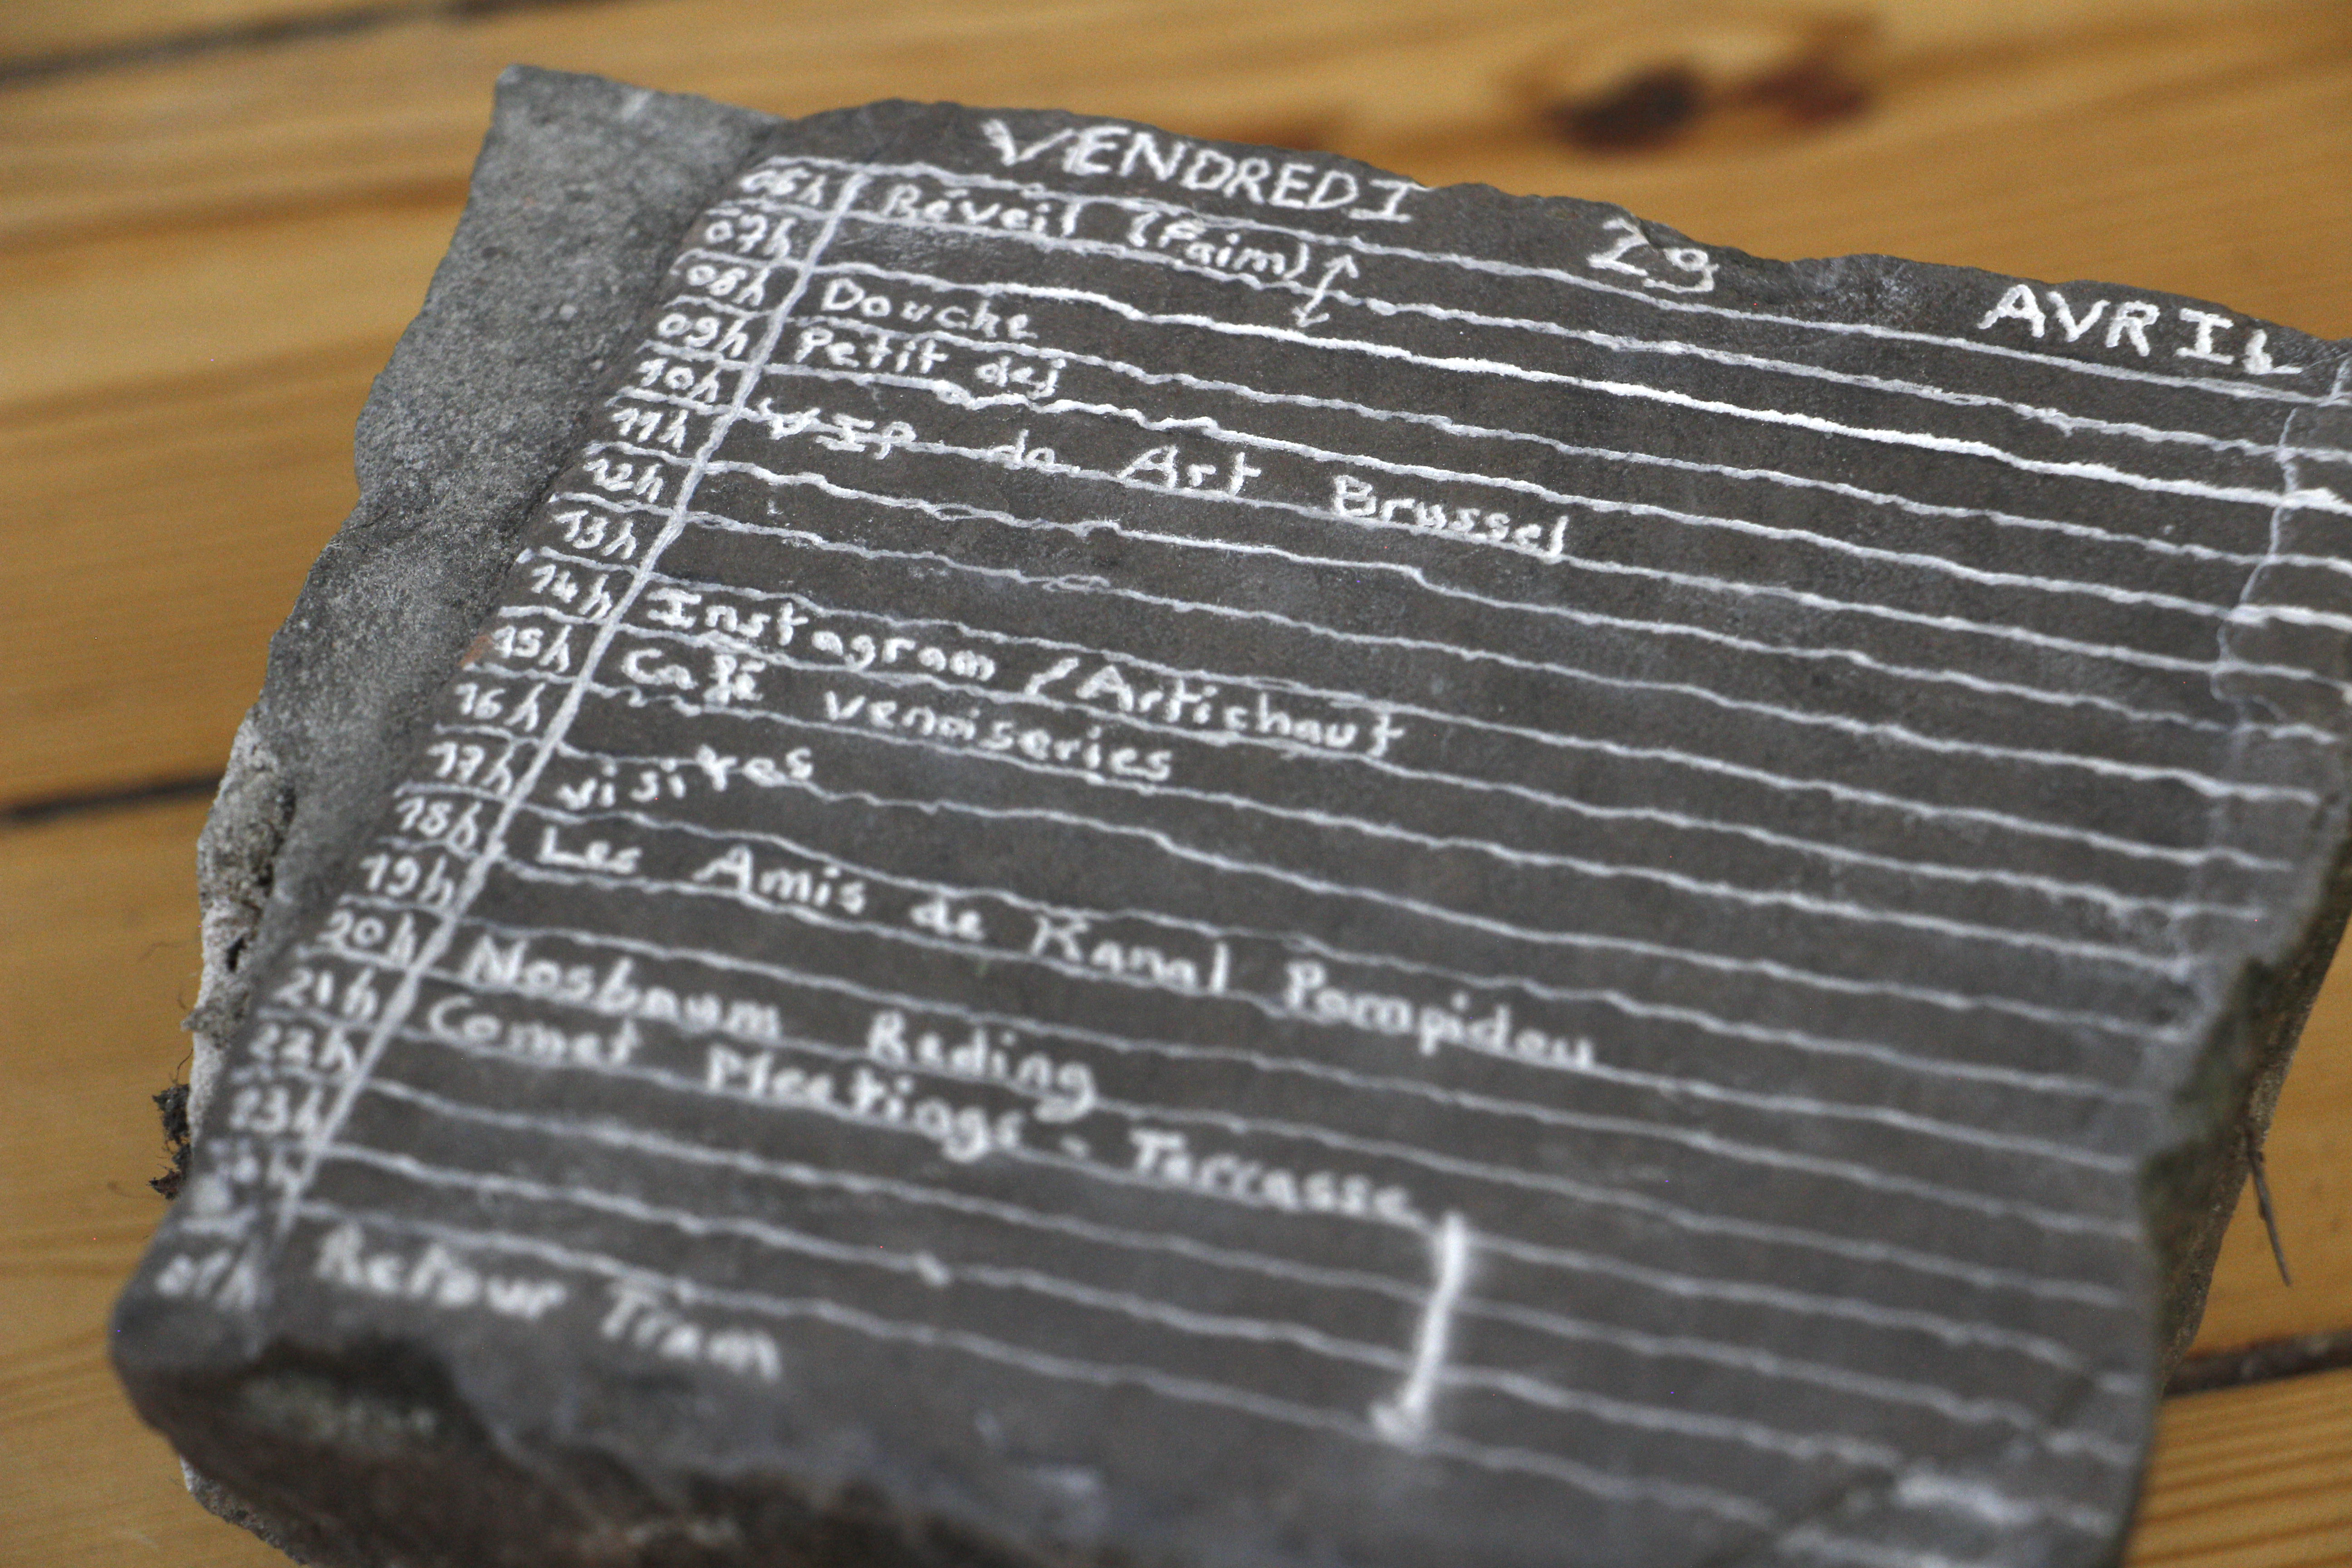 VENDREDI 29 AVRIL
06h Réveil (Faim)
07h
08h Douche
09h Petit dej
10h
11h VIP de Art Brussel
12h
13h
14h Instagram / Artichaut
15h Café venoiseries
16h
17h visites
18h Les Amis de Kanal Pompidou
19h
20h Nosbaum Reding
21h Comet Meetings - Terrasse
22h
23h
01h Retour Tram